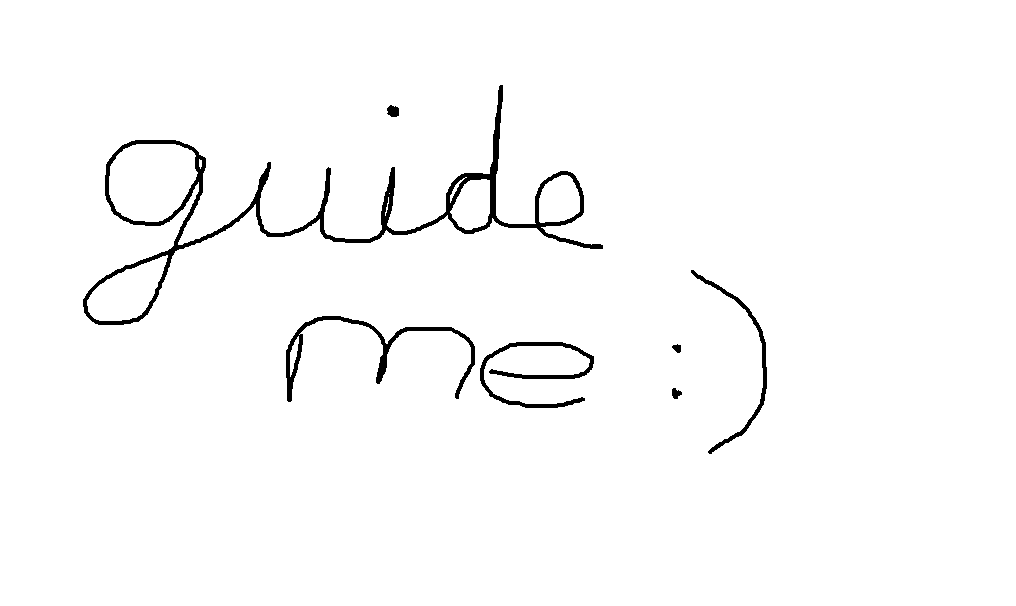 guide
me :)